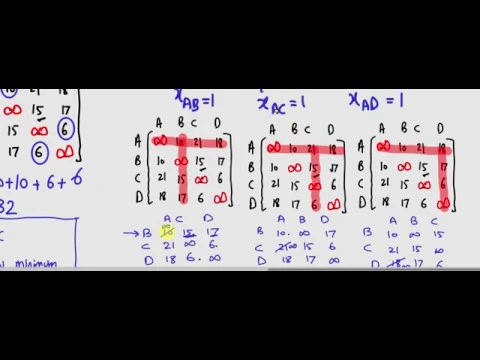 10 21 18
∞ 15 17
15 ∞ 6
17 6 ∞
+10 + 6 + 6
32
minimum
x_AB = 1
A B C D
A ∞ 10 21 18
B 10 ∞ 15 17
C 21 15 ∞ 6
D 18 17 6 ∞
A C D
→ B 10 ∞ 15 17
C 21 ∞ 6
D 18 6 ∞
x_AC = 1
A B C D
A ∞ 10 21 18
B 10 ∞ 15 17
C 21 15 ∞ 6
D 18 17 6 ∞
A B D
B 10 ∞ 17
C 21 ∞ 15 6
D 18 17 ∞
x_AD = 1
A B C D
A ∞ 10 21 18
B 10 ∞ 15 17
C 21 15 ∞ 6
D 18 17 6 ∞
A B C
B 10 ∞ 15
C 21 15 ∞
D 18 ∞ 17 6